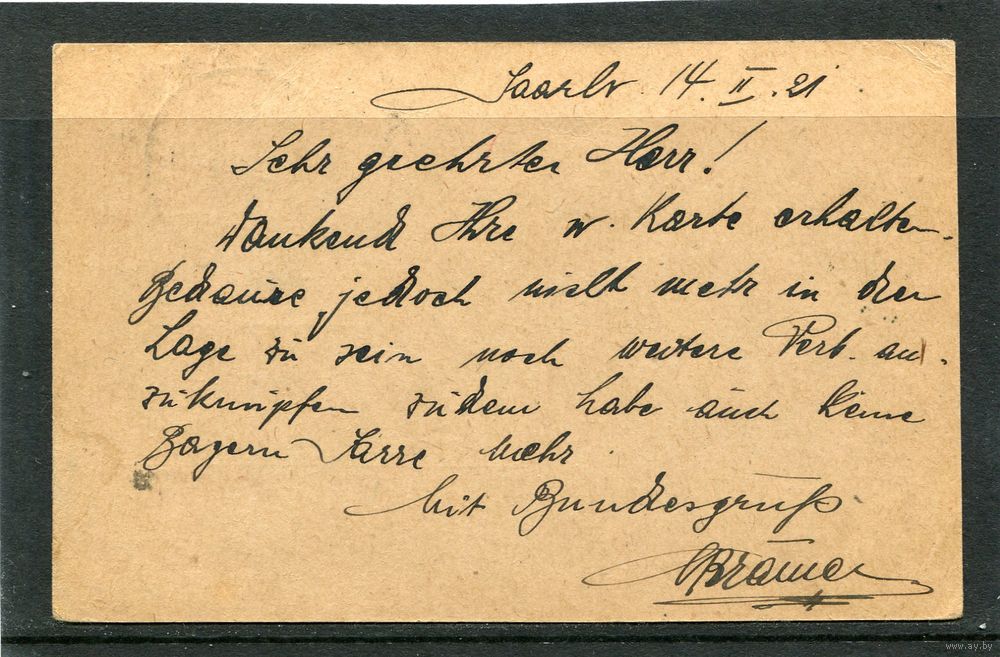 Saarlv. 14. II. 21
Sehr geehrter Herr!
Dankend Ihre w. Karte erhalten.
Bedaure jedoch nicht mehr in der
Lage zu sein noch weitere Verb. an-
zuknüpfen zudem habe auch keine
Bayern Sarre mehr.
Mit Bundesgruß
Krämer
www.ay.by